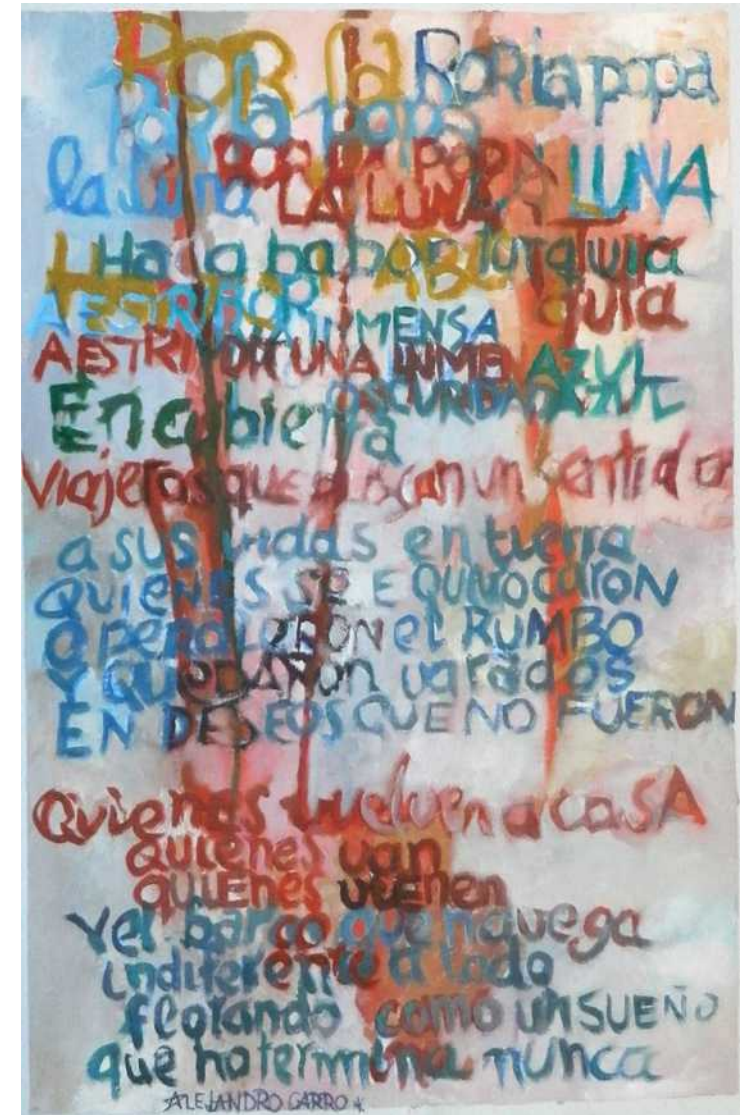 POR la PORla popa
PoR la popa
la luna POR LA POPA LUNA
LA LUNA
Hacia babor Turquia
A ESTRIBOR guia
INMENSA
A ESTRIBOR UNA INMENSA AZUL
OSCURIDAD AZUL
En cubierta
viajeros que buscan un sentido
a sus vidas en tierra
QUIENES SE EQUIVOCARON
O peRdIERON el RUMBO
Y QUEDARon varados
EN DESEOS QUE NO FUERON
Quienes vuelven a casA
quienes van
QUIEnES vienen
Y el barco que navega
indiferente a todo
flotando como un SUEÑO
que no termina nunca
ALEJANDRO GARRO